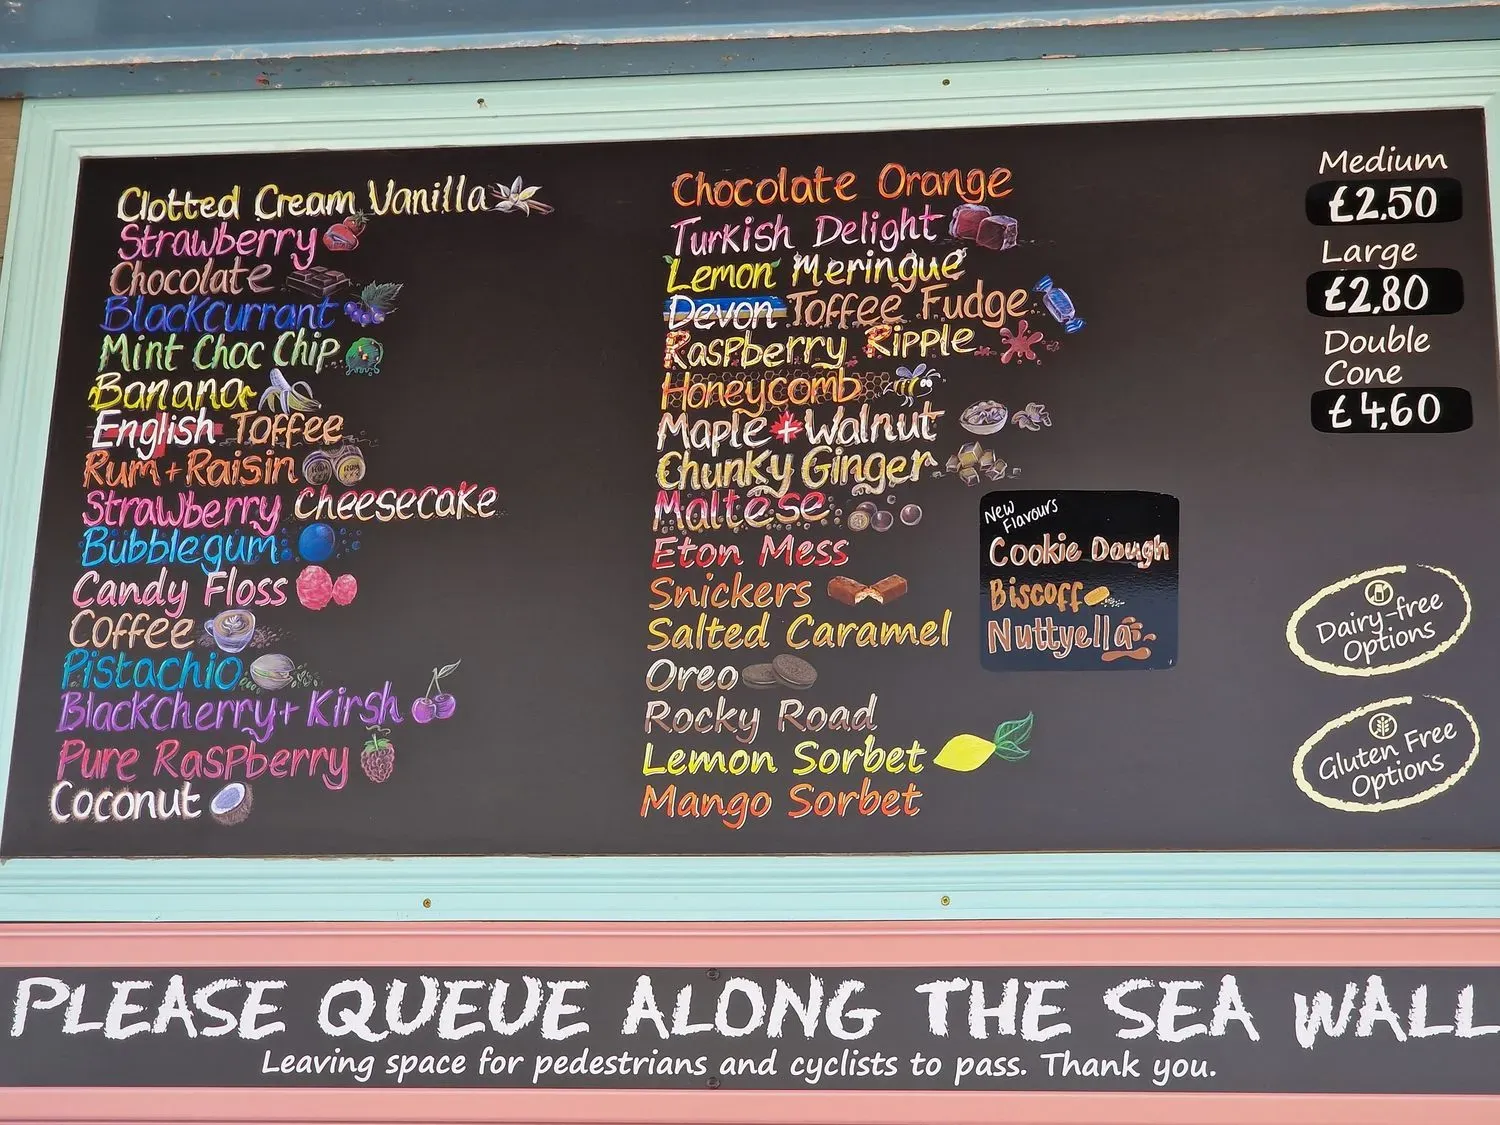 Clotted Cream Vanilla
Strawberry
Chocolate
Blackcurrant
Mint Choc Chip
Banana
English Toffee
Rum + Raisin
Strawberry Cheesecake
Bubblegum
Candy Floss
Coffee
Pistachio
Blackcherry + Kirsh
Pure Raspberry
Coconut
Chocolate Orange
Turkish Delight
Lemon Meringue
Devon Toffee Fudge
Raspberry Ripple
Honeycomb
Maple + Walnut
Chunky Ginger
Maltese
Eton Mess
Snickers
Salted Caramel
Oreo
Rocky Road
Lemon Sorbet
Mango Sorbet
New
Flavours
Cookie Dough
Biscoff
Nuttyella
Medium
£2.50
Large
£2.80
Double
Cone
£4.60
Dairy-free
Options
Gluten Free
Options
PLEASE QUEUE ALONG THE SEA WALL
Leaving space for pedestrians and cyclists to pass. Thank you.